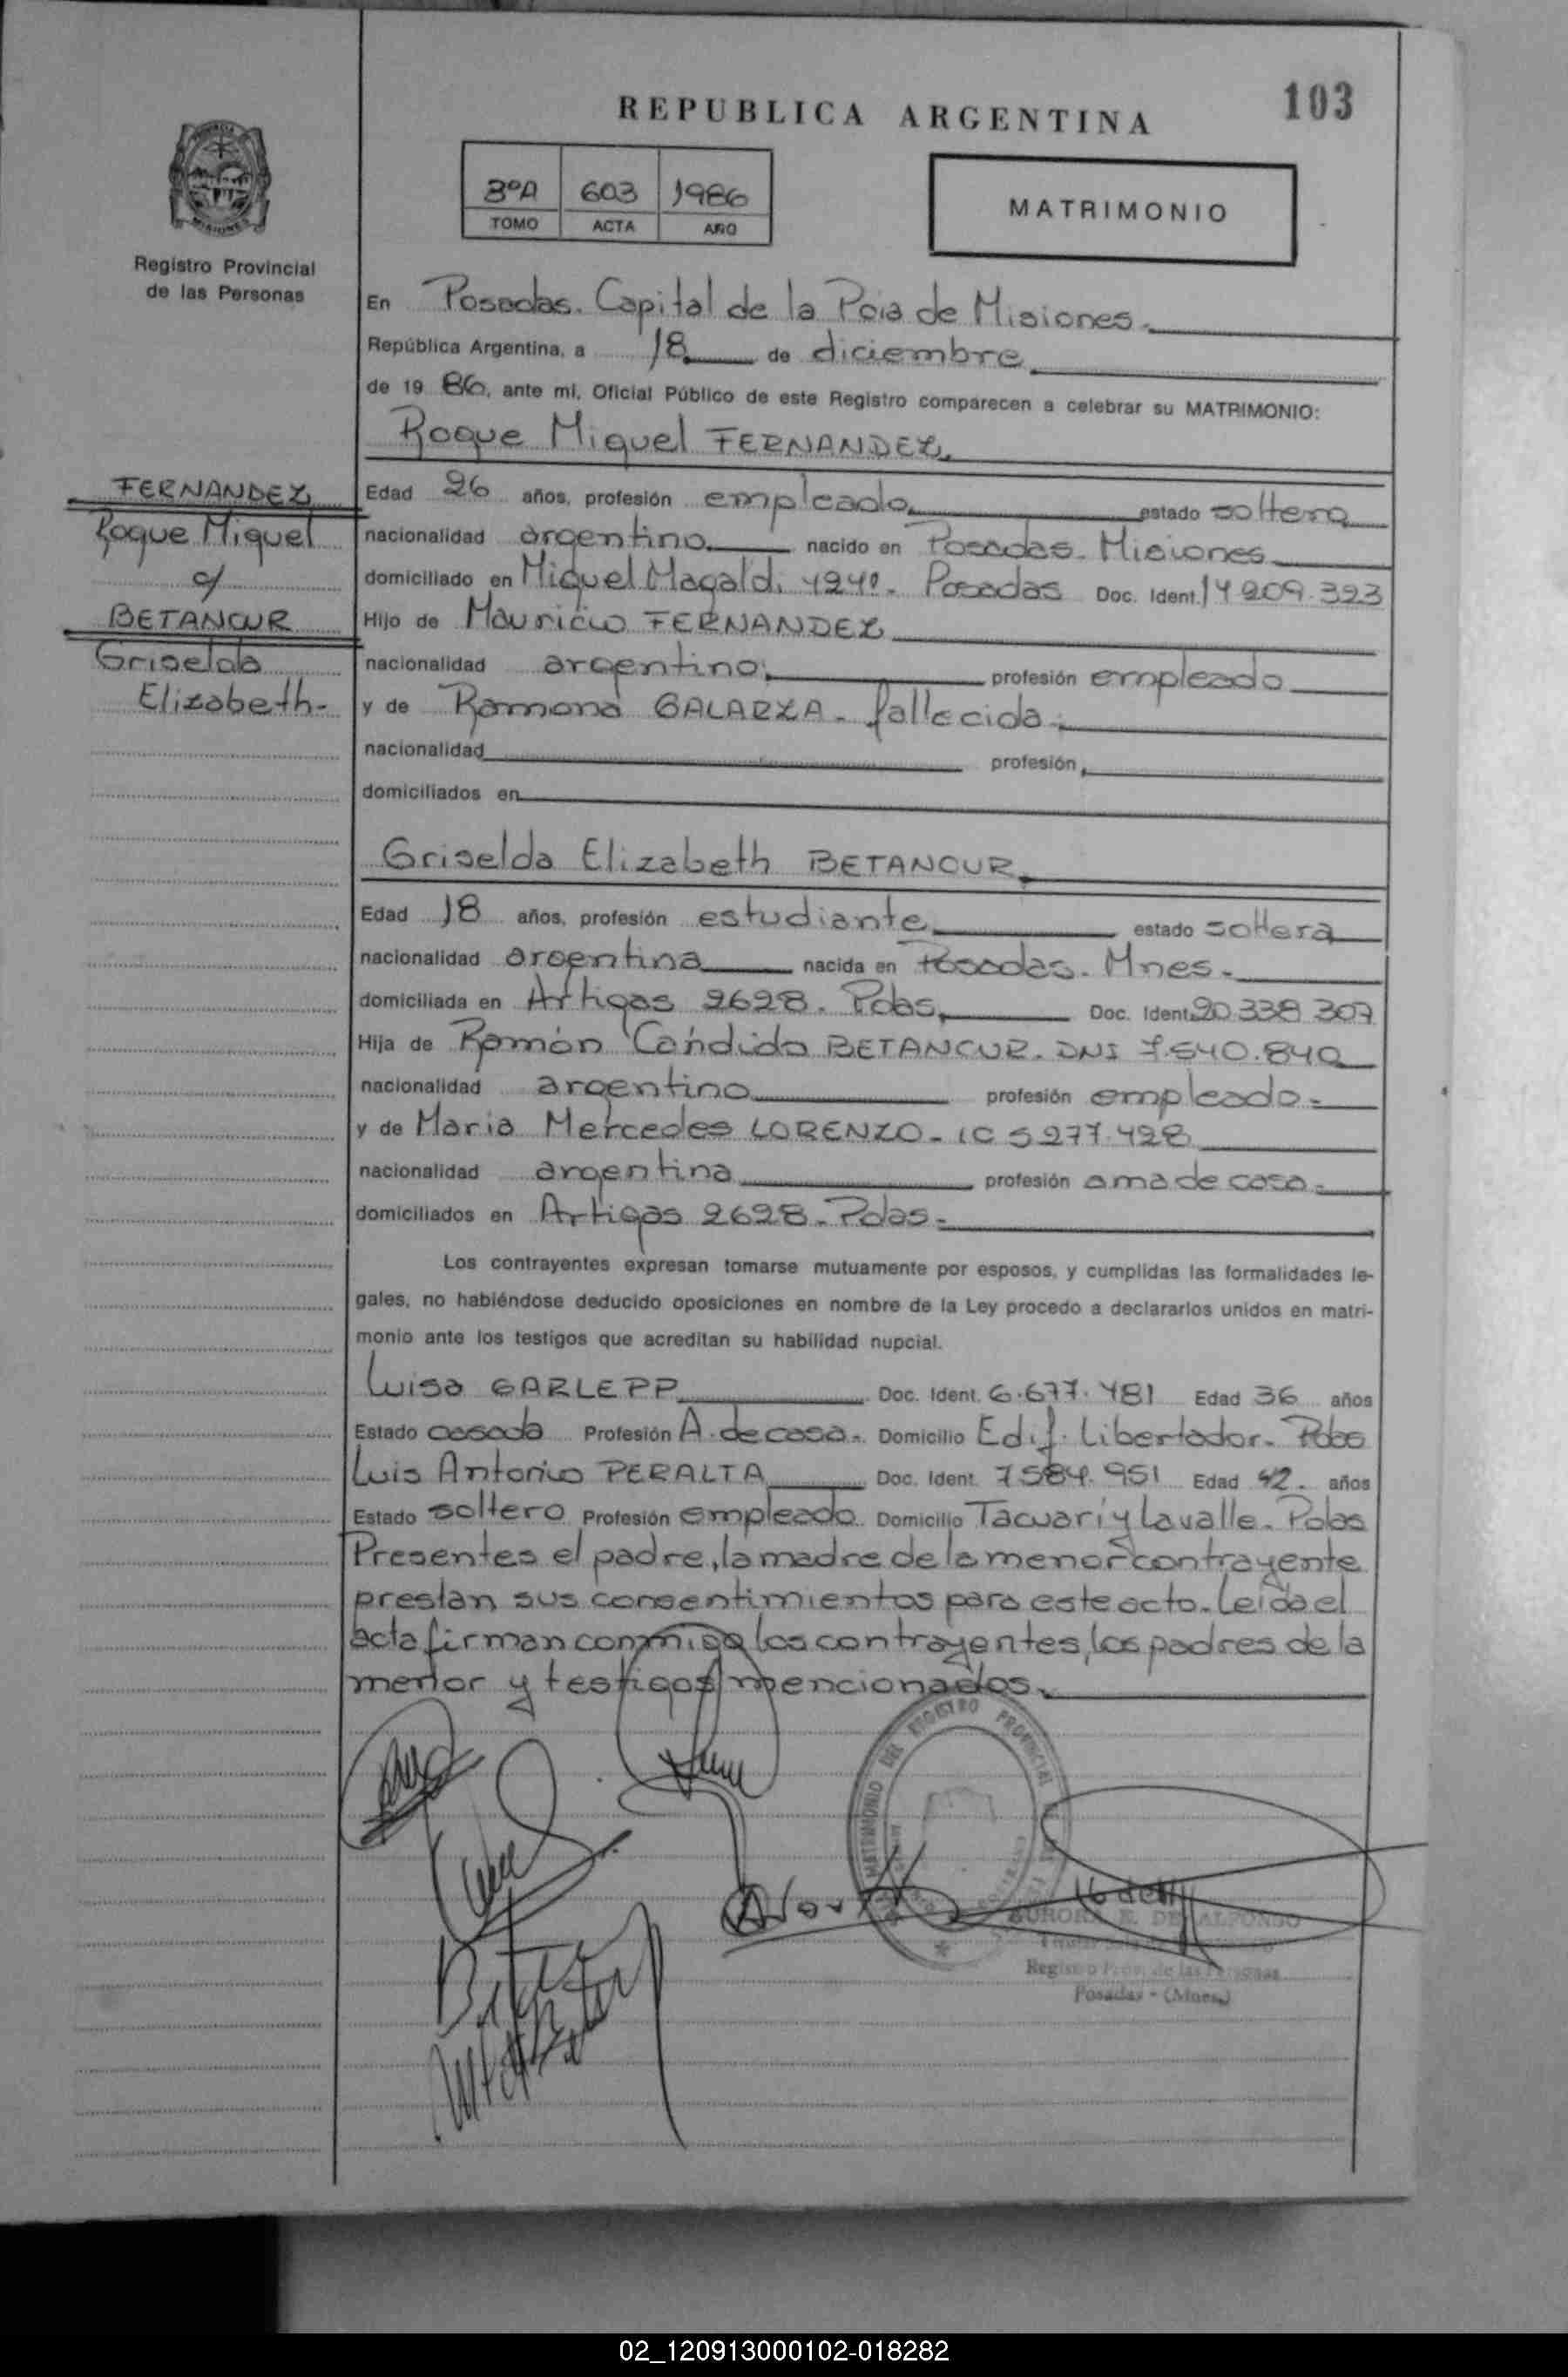 103
REPUBLICA ARGENTINA
3ºA 603 1986
TOMO ACTA AÑO
MATRIMONIO
Registro Provincial
de las Personas
En Posadas. Capital de la Pcia de Misiones.
República Argentina, a 18 de diciembre
de 19 86, ante mí, Oficial Público de este Registro comparecen a celebrar su MATRIMONIO:
Roque Miguel FERNANDEZ.
FERNANDEZ
Roque Miguel
c/
BETANCUR
Griselda
Elizabeth.
Edad 26 años, profesión empleado estado soltero
nacionalidad argentino nacido en Posadas. Misiones
domiciliado en Miguel Magaldi Posadas Doc. Ident. 14 209.323
Hijo de Mauricio FERNANDEZ
nacionalidad argentino profesión empleado
y de Ramona GALARZA. fallecida.
nacionalidad profesión
domiciliados en
Griselda Elizabeth BETANCUR
Edad 18 años, profesión estudiante estado soltera
nacionalidad argentina nacida en Posadas. Mnes.
domiciliada en Artigas 2628. Pdas. Doc. Ident. 20.338 307
Hija de Ramón Cándido BETANCUR. DNI 7.540.840
nacionalidad argentino profesión empleado.
y de Maria Mercedes LORENZO. LC 5 277.428
nacionalidad argentina profesión ama de casa.
domiciliados en Artigas 2628. Pdas.
Los contrayentes expresan tomarse mutuamente por esposos, y cumplidas las formalidades le-
gales, no habiéndose deducido oposiciones en nombre de la Ley procedo a declararlos unidos en matri-
monio ante los testigos que acreditan su habilidad nupcial.
Luisa GARLEPP Doc. Ident. 6.677.481 Edad 36 años
Estado casada Profesión A. de casa. Domicilio Edif. Libertador. Pdas
Luis Antonio PERALTA Doc. Ident. 7584.951 Edad 42. años
Estado soltero Profesión empleado Domicilio Tacuarí y Lavalle. Pdas
Presentes el padre, la madre de la menor contrayente
prestan sus consentimientos para este acto. Leida el
acta firman conmigo los contrayentes, los padres de la
menor y testigos mencionados.
MATRIMONIO DEL REGISTRO PROVINCIAL
AURORA E. DE ALFONSO
Registro Prov. de las Personas
Posadas - (Mnes.)
02_120913000102-018282